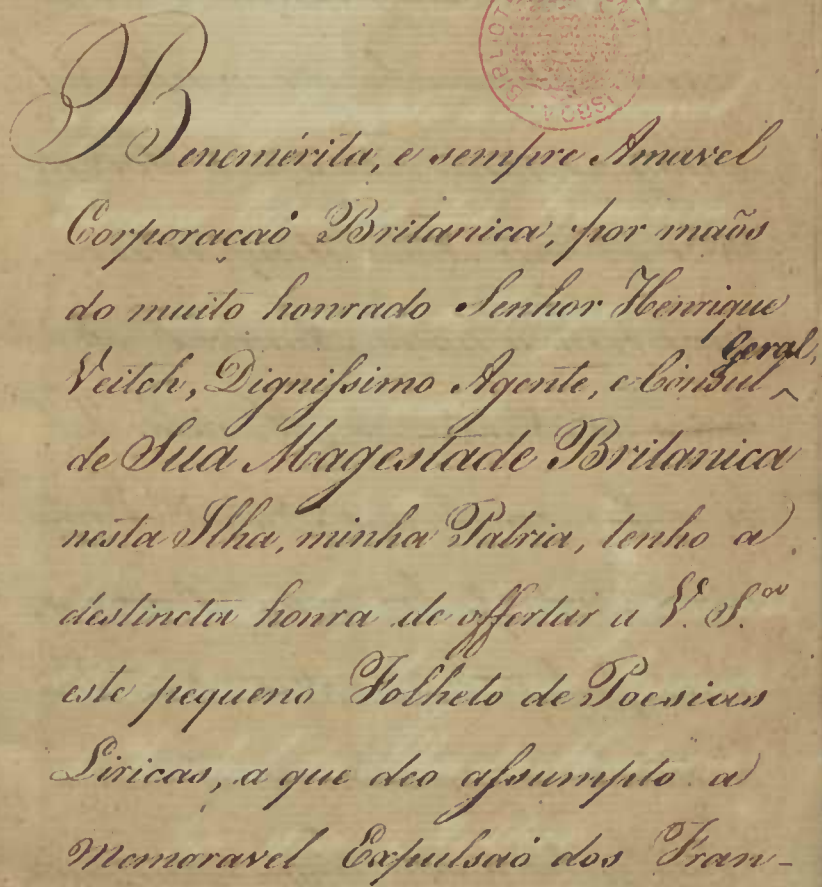 Benemérita, e sempre Amavel
Corporacaõ Britanica, por maõs
do muito honrado Senhor Henrique
Veitch, Dignissimo Agente, e Cônsul ^ Geral,
de Sua Magestade Britanica
nesta Ilha, minha Patria, tenho a
destincta honra de offertar a V. S.ᵃ
este pequeno Folheto de Poesias
Liricas, a que deo assumpto a
Memoravel Expulsaõ dos Fran-